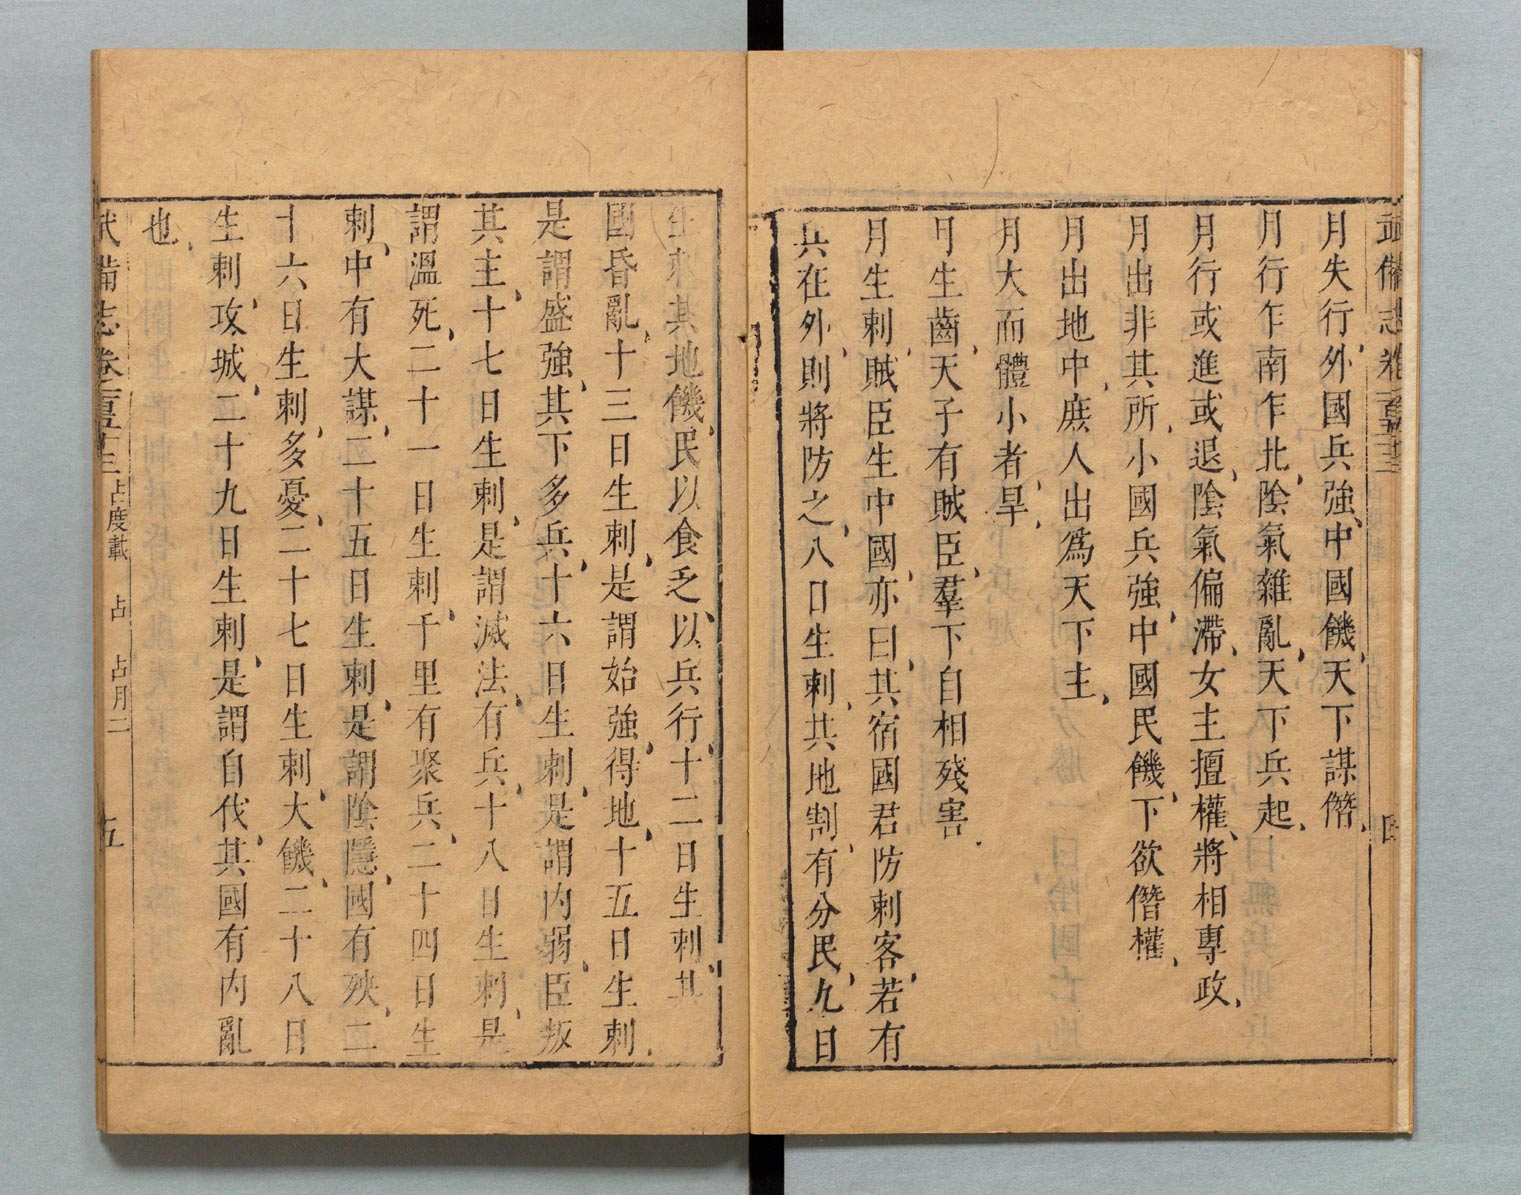 武備志卷一百五十三
四
月失行外國兵強中國饑天下謀僭
月行乍南乍北陰氣雜亂天下兵起
月行或進或退陰氣偏滯女主擅權將相專政
月出非其所小國兵強中國民饑下欲僭權
月出地中庶人出為天下主
月大而體小者旱
月生齒天子有賊臣羣下自相殘害
月生刺賊臣生中國亦曰其宿國君防刺客若有
兵在外則將防之八日生刺其地割有分民九日
生刺其地饑民以食乏以兵行十二日生刺其
國昏亂十三日生刺是謂始強得地十五日生刺
是謂盛強其下多兵十六日生刺是謂内弱臣叛
其主十七日生刺是謂滅法有兵十八日生刺是
謂溫死二十一日生刺千里有聚兵二十四日生
刺中有大謀二十五日生刺是謂陰隱國有殃二
十六日生刺多憂二十七日生刺大饑二十八日
生刺攻城二十九日生刺是謂自伐其國有内亂
也
武備志卷一百五十三 占度載 占 占月二 五